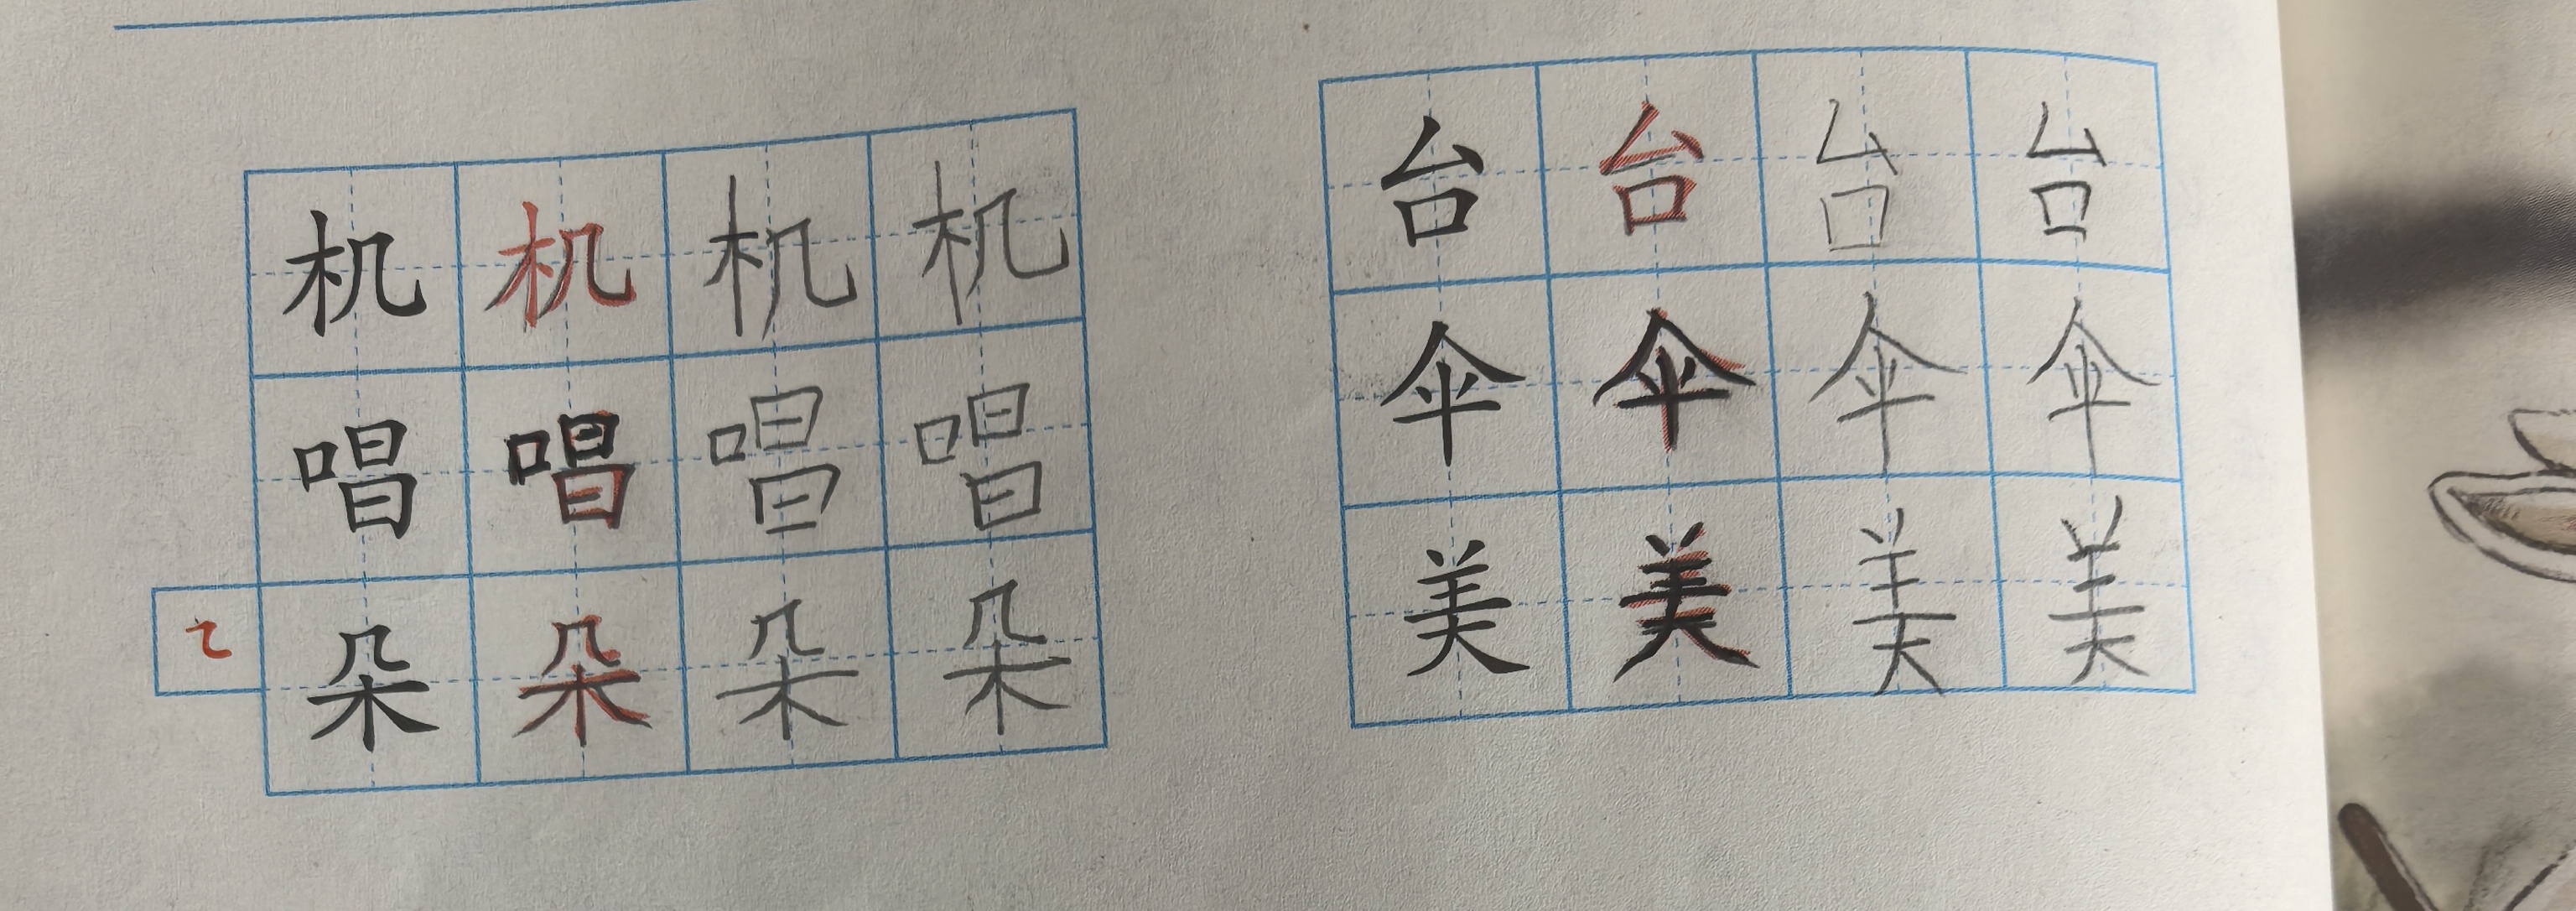 机 机 机 机
唱 唱 唱 唱
㇍ 朵 朵 朵 朵
台 台 台 台
伞 伞 伞 伞
美 美 美 美